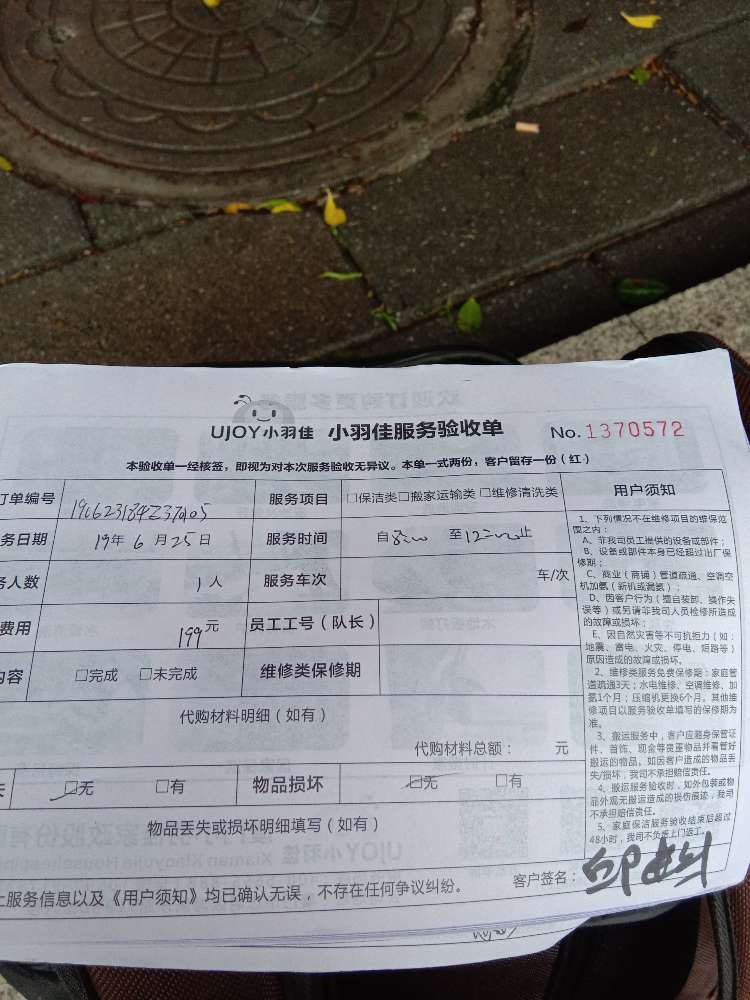 UJOY小羽佳 小羽佳服务验收单 No.1370572
本验收单一经核签,即视为对本次服务验收无异议。本单一式两份,客户留存一份(红)
订单编号 服务项目 □保洁类□搬家运输类□维修清洗类
务日期 19年 6 月 25 日 服务时间 自 8:00 至 12:00止
务人数 1 人 服务车次 车/次
费用 199 元 员工工号(队长)
内容 □完成 □未完成 维修类保修期
代购材料明细(如有)
代购材料总额: 元
失 □无 □有 物品损坏 □无 □有
物品丢失或损坏明细填写(如有)
上服务信息以及《用户须知》均已确认无误,不存在任何争议纠纷。 客户签名:
用户须知
1、下列情况不在维修项目的维保范
围之内:
A、非我司员工提供的设备或部件;
B、设备或部件本身已经超过出厂保
修期;
C、商业(商铺)管道疏通、空调空
机加氨(新机或漏氨);
D、因客户行为(擅自装卸、操作失
误等)或另请非我司人员检修所造成
的故障或损坏;
E、因自然灾害等不可抗拒力(如:
地震、雷电、火灾、停电、短路等)
原因造成的故障或损坏。
2、维修类服务免费保修期:家庭管
道疏通3天;水电维修、空调维修、加
氨1个月;压缩机更换6个月。其他维
修项目以服务验收单填写的保修期为
准。
3、搬运服务中,客户应随身保管证
件、首饰、现金等贵重物品并看管好
搬运的物品。如因客户造成的物品丢
失/损坏,我司不承担赔偿责任。
4、搬运服务验收时,如外包装或物
品外观无搬运造成的损伤痕迹,我司
不承担赔偿责任。
5、家庭保洁服务验收结束后超过
48小时,我司不负责上门返工。